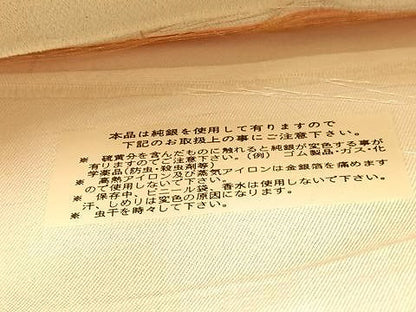 本品は純銀を使用して有りますので
下記のお取扱上の事にご注意下さい。
※ 硫黄分を含んだものに触れると純銀が変色する事が
有りますのでご注意下さい。(例) ゴム製品・ガス・化
学薬品(防虫・殺虫剤等)
※ 高熱アイロン及び蒸気アイロンは金銀箔を痛めます
ので使用しないで下さい。
※ 保存中、ビニール袋、香水は使用しないで下さい。
汗、しめりは変色の原因になります。
※ 虫干を時々して下さい。